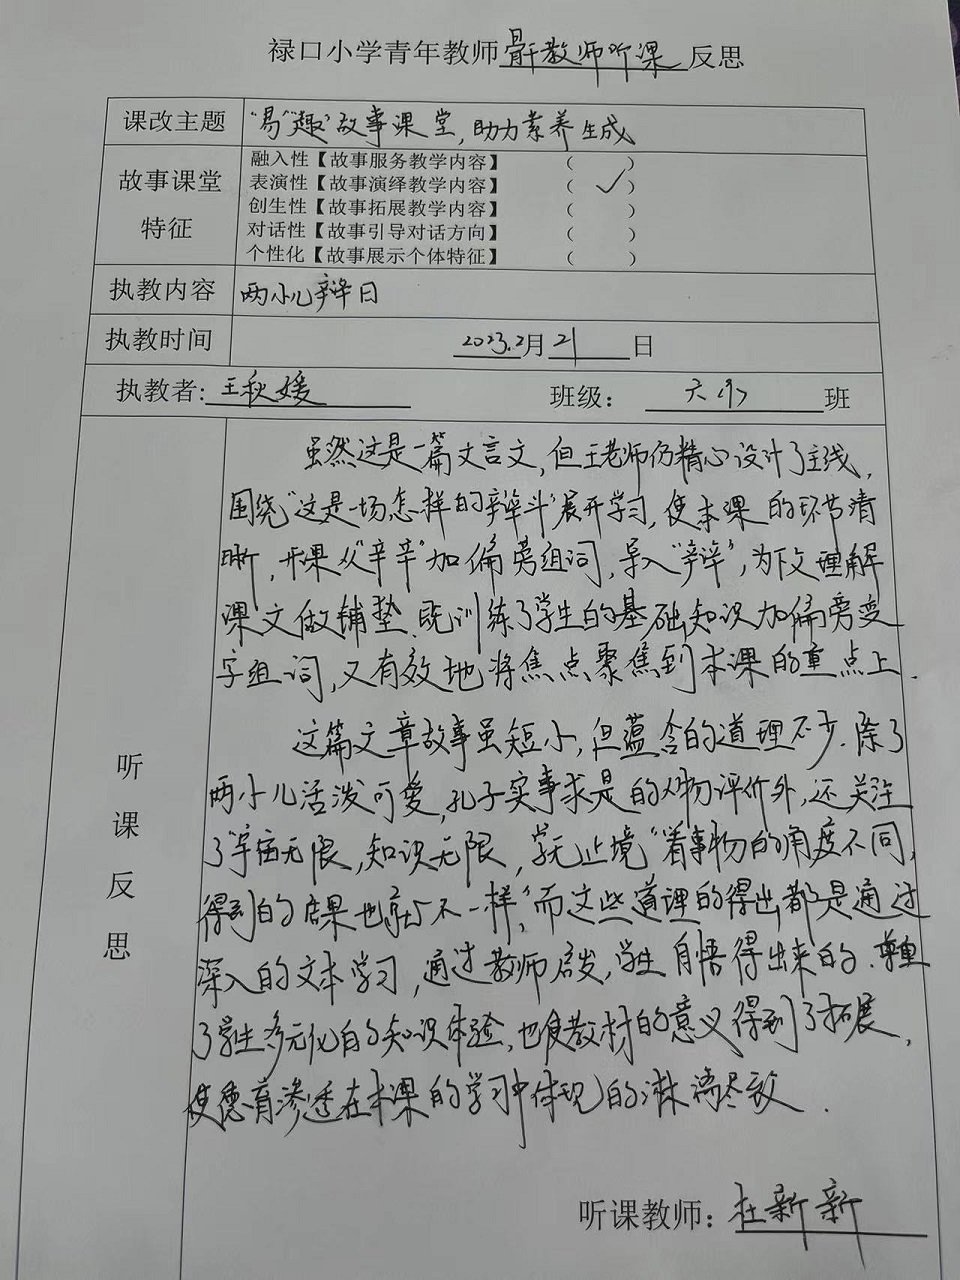 禄口小学青年教师骨干教师听课反思
课改主题 “易”“趣”故事课堂，助力素养生成
故事课堂特征
融入性【故事服务教学内容】 （ ）
表演性【故事演绎教学内容】 （✓）
创生性【故事拓展教学内容】 （ ）
对话性【故事引导对话方向】 （ ）
个性化【故事展示个体特征】 （ ）
执教内容 两小儿辩日
执教时间 2023.2月21日
执教者：王秋媛 班级：六 班
听课反思
虽然这是一篇文言文，但王老师仍精心设计了主线，
围绕“这是一场怎样的辩斗”展开学习，使本课的环节清
晰，开课从“辛辛”加偏旁组词，导入“辩”，为下文理解
课文做铺垫.既训练了学生的基础知识加偏旁变
字组词，又有效地将焦点聚焦到本课的重点上.
这篇文章故事虽短小，但蕴含的道理不少.除了
两小儿活泼可爱，孔子实事求是的人物评价外，还关注
了“宇宙无限，知识无限，学无止境”“看事物的角度不同，
得到的结果也就不一样，”而这些道理的得出，都是通过
深入的文本学习，通过教师启发，学生自悟得出来的.尊重
了学生多元化的知识体验，也使教材的意义得到了拓展，
使德育渗透在本课的学习中体现的淋漓尽致.
听课教师：杜新新